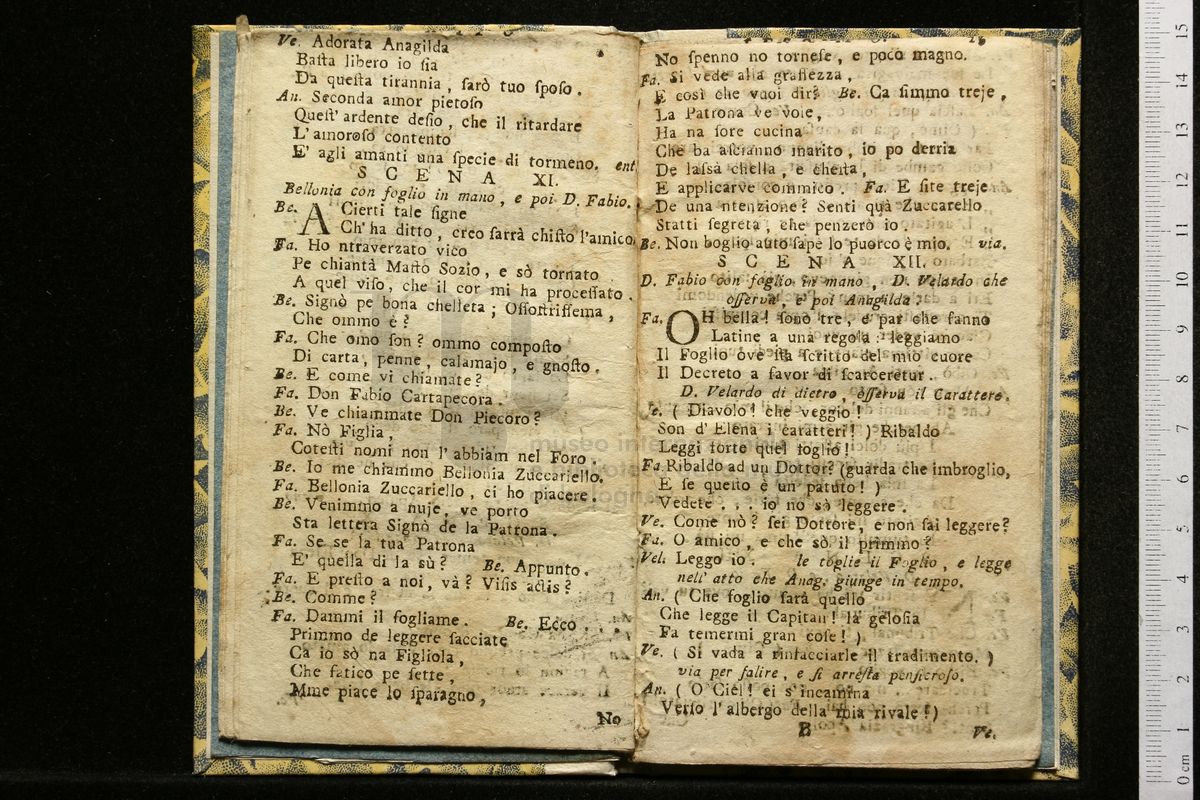 Ve. Adorata Anagilda
Baſta libero io ſia
Da queſta tirannia, ſarò tuo ſpoſo.
An. Seconda amor pietoſo
Queſt' ardente deſio, che il ritardare
L'amoroſo contento
E' agli amanti una ſpecie di tormeno. ent
SCENA XI.
Bellonia con foglio in mano, e poi D. Fabio.
Be. A Cierti tale ſigne
Ch' ha ditto, creo ſarrà chiſto l'amico
Fa. Ho ntraverzato vico
Pe chiantà Maſto Sozio, e sò tornato
A quel viſo, che il cor mi ha proceſſato.
Be. Signò pe bona chelleta; Oſſoſtriſſema,
Che ommo è?
Fa. Che omo ſon? ommo compoſto
Di carta, penne, calamajo, e gnoſto.
Be. E come vi chiamate?
Fa. Don Fabio Cartapecora.
Be. Ve chiammate Don Piecoro?
Fa. Nò Figlia,
Coteſti nomi non l'abbiam nel Foro
Be. Io me chiammo Bellonia Zuccariello.
Fa. Bellonia Zuccariello, ci ho piacere.
Be. Venimmo a nuje, ve porto
Sta lettera Signò de la Patrona.
Fa. Se se la tua Patrona
E' quella di la sù? Be. Appunto.
Fa. E preſto a noi, và? Viſis actis?
Be. Comme?
Fa. Dammi il fogliame. Be. Ecco . .
Primmo de leggere ſacciate
Ca io sò na Figliola,
Che fatico pe ſette,
Mme piace lo ſparagno,
No
No ſpenno no torneſe, e poco magno.
Fa. Si vede alla graſſezza,
E così che vuoi dir? Be. Ca ſimmo treje,
La Patrona ve voie,
Ha na ſore cucina
Che ba aſcianno marito, io po derria
De laſsà chella, e cheſta,
E applicarve commico. Fa. E ſite treje
De una ntenzione? Senti quà Zuccarello
Statti ſegreta, che penzerò io.
Be. Non boglio auto ſapè lo puorco è mio. via.
SCENA XII.
D. Fabio con foglio in mano, D. Velardo che
oſſerva, e poi Anagilda.
Fa. OH bella! ſono tre, e par che fanno
Latine a una regola: leggiamo
Il Foglio ove ſta ſcritto del mio cuore
Il Decreto a favor di ſcarceretur.
D. Velardo di dietro, oſſerva il Carattere.
Ve. (Diavolo! che veggio!
Son d'Elena i caratteri!) Ribaldo
Leggi forte quel foglio!
Fa Ribaldo ad un Dottor? (guarda che imbroglio,
E ſe queſto è un patuto!)
Vedete . . . io no sò leggere.
Ve. Come nò? ſei Dottore, e non ſai leggere?
Fa. O amico, e che sò il primmo?
Vel. Leggo io. le toglie il Foglio, e legge
nell' atto che Anag. giunge in tempo.
An. (Che foglio ſarà quello
Che legge il Capitan! la geloſia
Fa temermi gran coſe!)
Ve. (Si vada a rinfacciarle il tradimento.)
via per ſalire, e ſi arreſta penſieroſo.
An. (O Ciel! ei s'incamina
Verſo l'albergo della mia rivale!)
B
Ve.